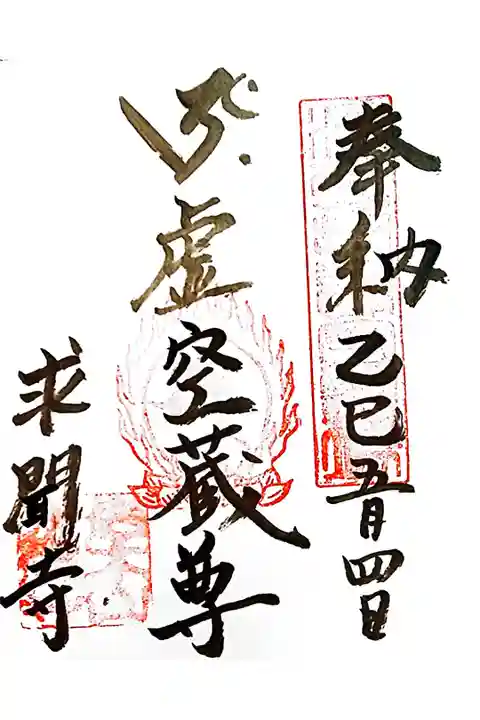 奉納乙巳五月四日
虚空蔵尊
求聞寺